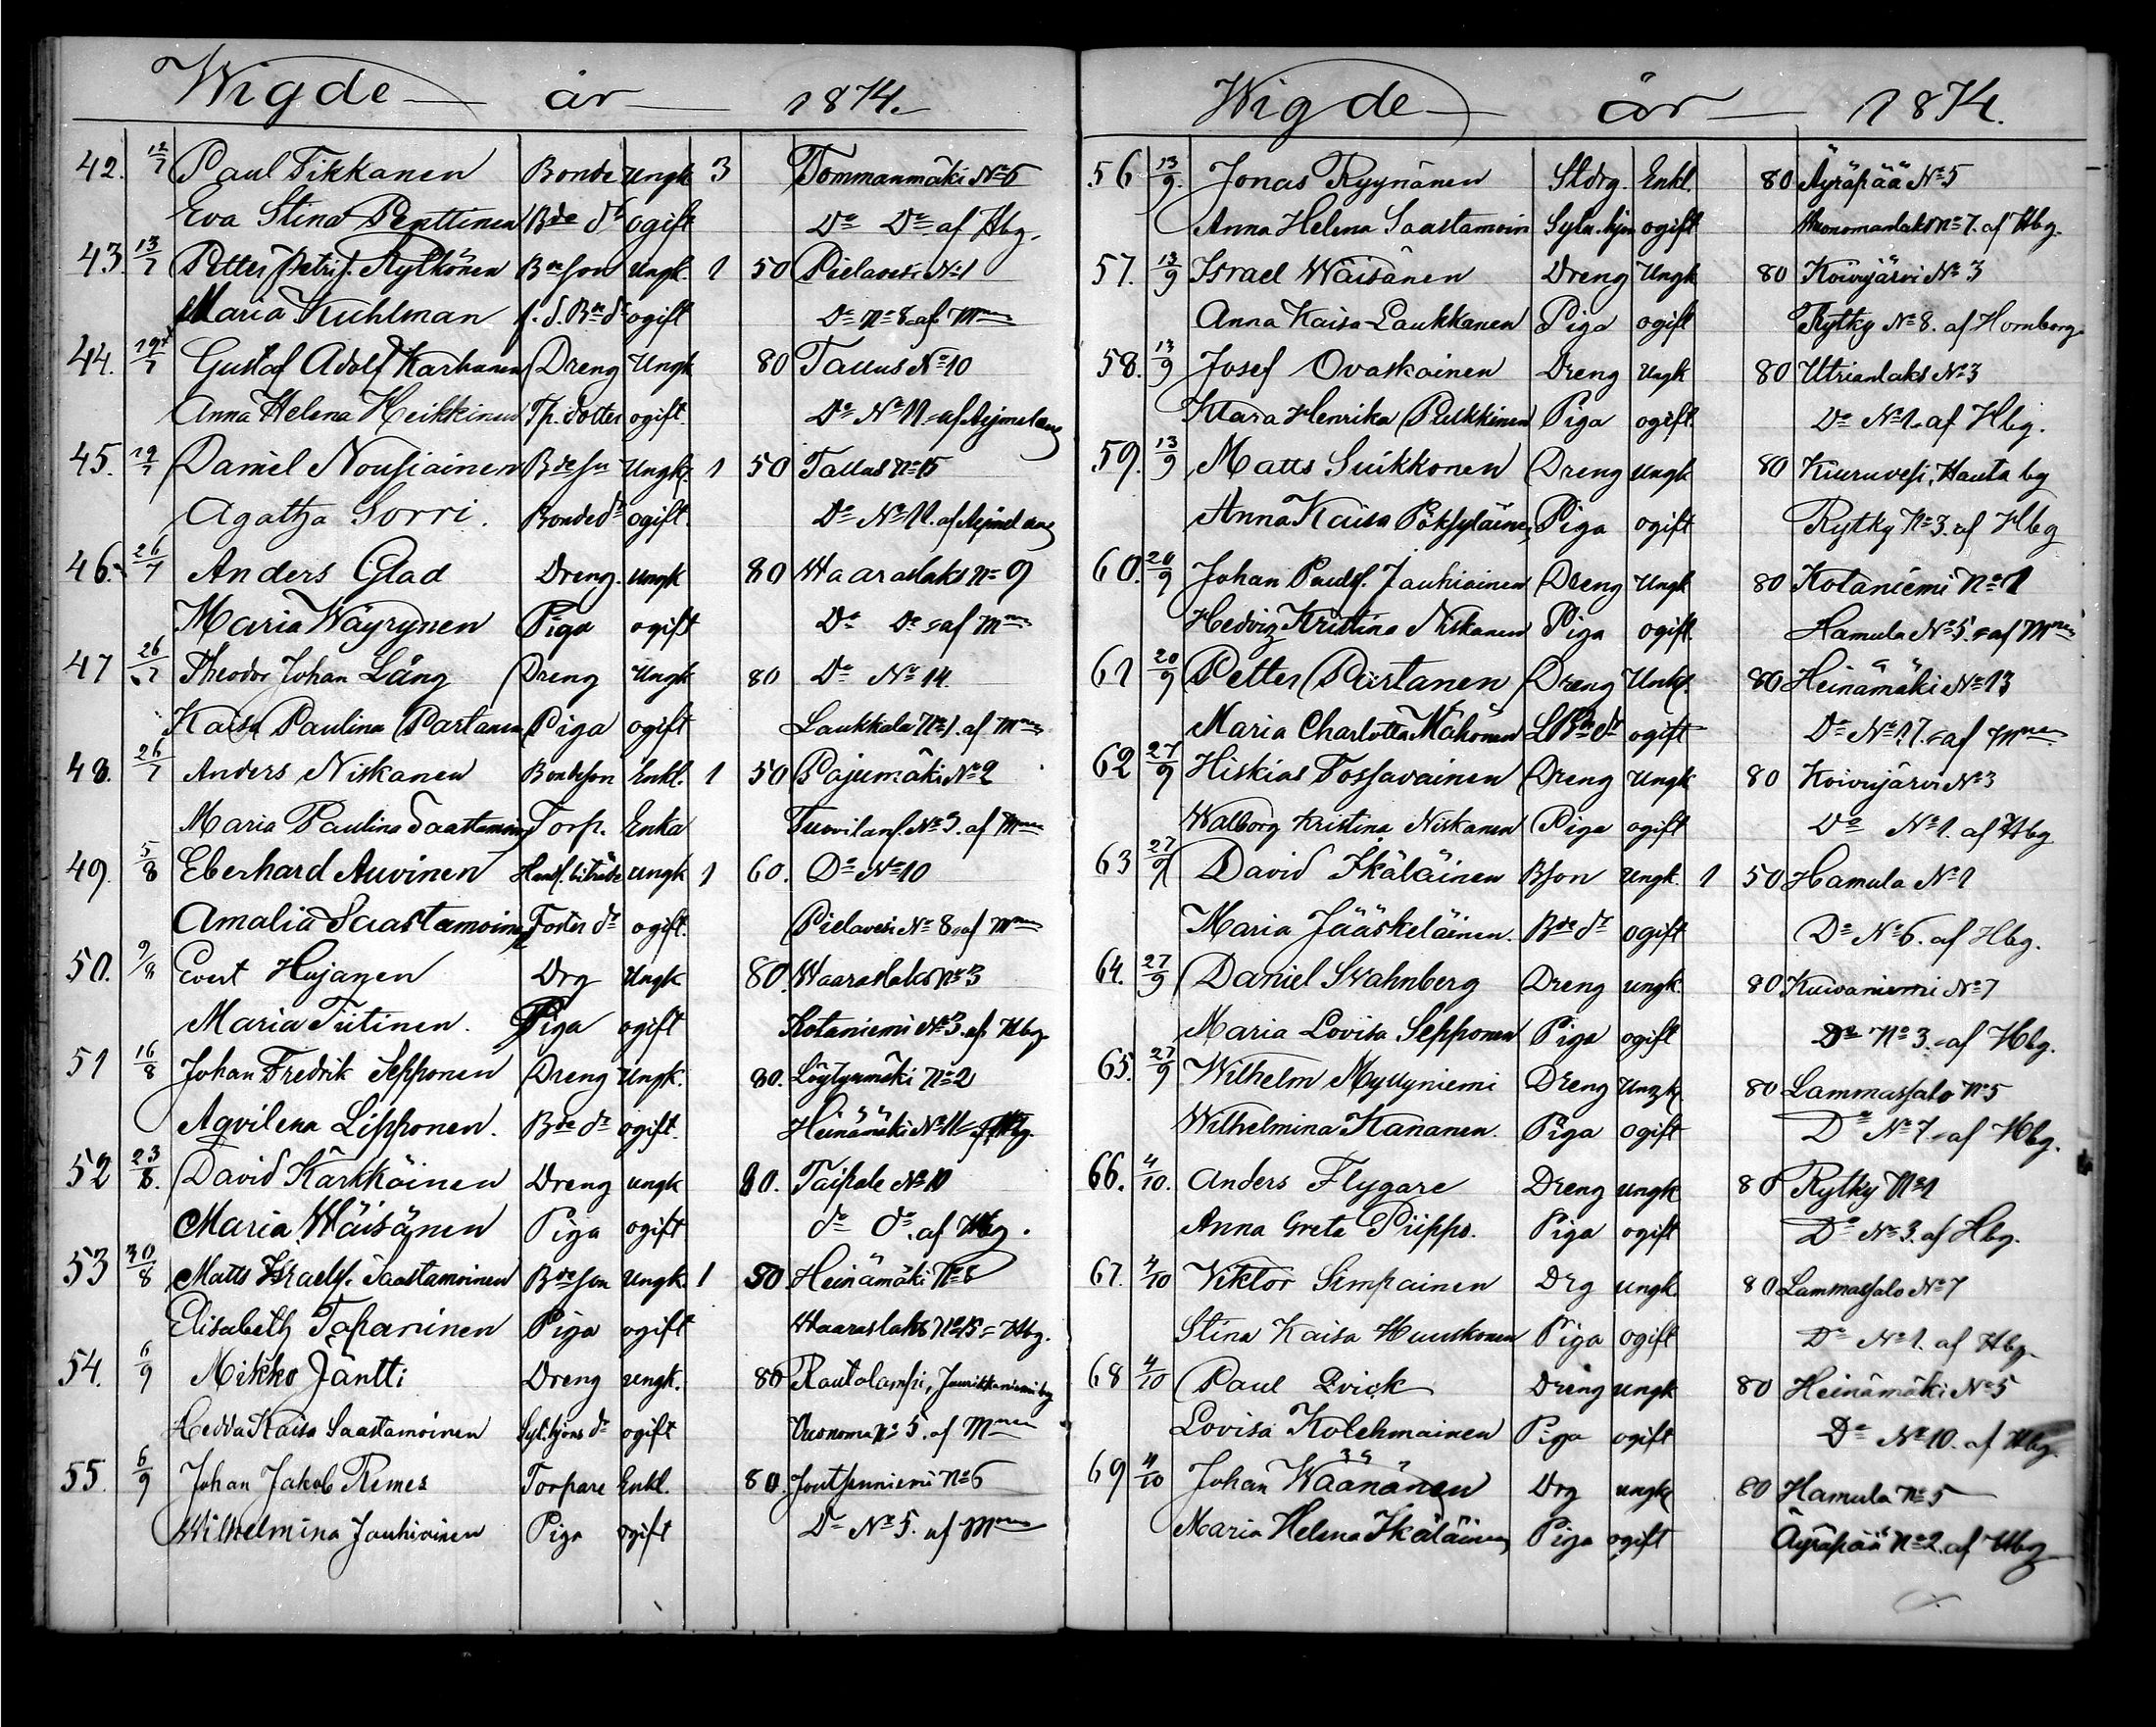 Wigde år 1874.
42. 12/7 Paul Tikkanen Bonde Ungk 3 Tommanmäki No 6
Eva Stina Penttinen Bde dr ogift Do Do af Hbg.
43 13/7 Petter Petrisf. Rytkönen Bdeson Ungk. 1 50 Pielavesi No 1
Maria Kuhlman f.d. Bde dr ogift Do No 8 af Mnen
44. 19/7 Gustaf Adolf Karhunen Dreng Ungk 80 Tallus No 10
Anna Helena Heikkinen Tp. dotter ogift Do No 11 af
45. 19/7 Daniel Nousiainen Bdeson Ungk. 1 50 Tallus No 15
Agatha Sorri. Bonde dr ogift Do No 11. af
46. 26/7 Anders Glad Dreng. ungk 80 Waaraslaks No 9
Maria Wäyrynen Piga ogift Do Do af Mnen
47 26/7 Theodor Johan Lång Dreng Ungk 80 Do No 14.
Kaisa Paulina Partanen Piga ogift Laukkala No 1. af Mnen
48. 26/7 Anders Niskanen Bondeson Enkl. 1 50 Pajumäki No 2
Maria Paulina Saastamoinen Torp. Enka No 3. af Mnen
49. 5/8 Eberhard Auvinen Handl. biträde ungk 1 60. Do No 10
Amalia Saastamoinen Foster dr ogift. Pielavesi No 8 af Mnen
50. 9/8 Evert Hujanen Drg Ungk 80. Waaraslaks No 3
Maria Tiitinen. Piga ogift Kotaniemi No 3. af Hbg.
51 16/8 Johan Fredrik Sepponen Dreng Ungk. 80. Löytynmäki No 2
Aqvilena Lipponen. Bde dr ogift. Heinämäki No 11 af Hbg.
52 23/8. David Kärkkäinen Dreng ungk 80. Taipale No 10
Maria Wäisänen Piga ogift do do. af Hbg.
53 30/8 Matts Israelsf. Saastamoinen Bdeson Ungk 1 50 Heinämäki No 8
Elisabeth Tapaninen Piga ogift Waaraslaks No 15 = Hbg.
54. 6/9 Mikko Jäntti Dreng ungk. 80 Rautalampi, by
Hedda Kaisa Saastamoinen Syt.hjons dr ogift Vuonoma No 5. af Mnen
55. 6/9 Johan Jakob Remes Torpare Enkl. 80. Joutsenniemi No 6
Wilhelmina Jauhiainen Piga ogift Do No 5. af Mnen
Wigde år 1874.
56 13/9. Jonas Ryynänen Stdrg. Enkl. 80 Äyräpää No 5
Anna Helena Saastamoin Sytn.hjon ogift Wuonomanlaks No 7. af Hbg.
57. 13/9 Israel Wäisänen Dreng Ungk 80 Koivujärvi No 3
Anna Kaisa Laukkanen Piga ogift Rytky No 8. af Hornborg
58. 13/9 Josef Ovaskainen Dreng Ungk 80 Utrianlaks No 3
Klara Henrika Pulkkinen Piga ogift Do No 1. af Hbg.
59. 13/9 Matts Suikkonen Dreng ungk 80 Kiuruvesi, Hauta by
Anna Kaisa Piga ogift Rytky No 3. af Hbg
60. 20/9 Johan Paulsf. Jauhiainen Dreng Ungk 80 Kotaniemi No 1
Hedvig Kristina Niskanen Piga ogift Hamula No 5. af Mnen
61 20/9 Petter Partanen Dreng Unk. 80 Heinämäki No 13
Maria Charlotta Mähönen LBde dr ogift Do No 17. af Mnen
62 27/9 Hiskias Tossavainen Dreng Ungk 80 Koivujärvi No 3
Walborg Kristina Niskanen Piga ogift Do No 1. af Hbg
63 27/9 David Ikäläinen Bson Ungk. 1 50 Hamula No 1
Maria Jääskeläinen. Bde dr ogift Do No 6. af Hbg.
64. 27/9 Daniel Svahnberg Dreng ungk. 80 Kuivaniemi No 7
Maria Lovisa Sepponen Piga ogift Do No 3. af Hbg.
65. 27/9 Wilhelm Myllyniemi Dreng Ungk 80 Lammassalo No 5
Wilhelmina Kananen. Piga ogift Do No 7. af Hbg.
66. 4/10. Anders Flygare Dreng ungk 80 Rytky No 1
Anna Greta Piippo. Piga ogift Do No 3. af Hbg.
67. 4/10 Viktor Simpainen Drg ungk. 80 Lammassalo No 7
Stina Kaisa Huuskonen Piga ogift Do No 1. af Hbg.
68 4/10 Paul Qvick Dreng ungk 80 Heinämäki No 5
Lovisa Kolehmainen Piga ogift Do No 10. af Hbg.
69 4/10 Johan Wäänänen Drg ungk 80 Hamula No 5
Maria Helena Ikäläinen Piga ogift Äyräpää No 2. af Hbg